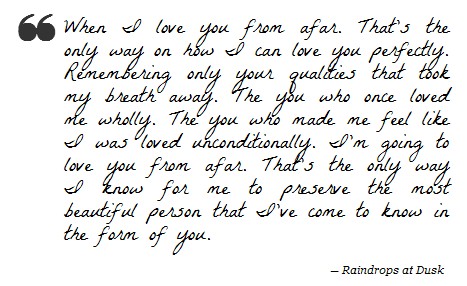 “ When I love you from afar. That's the
only way on how I can love you perfectly.
Remembering only your qualities that took
my breath away. The you who once loved
me wholly. The you who made me feel like
I was loved unconditionally. I'm going to
love you from afar. That's the only way
I know for me to preserve the most
beautiful person that I've come to know in
the form of you.
— Raindrops at Dusk